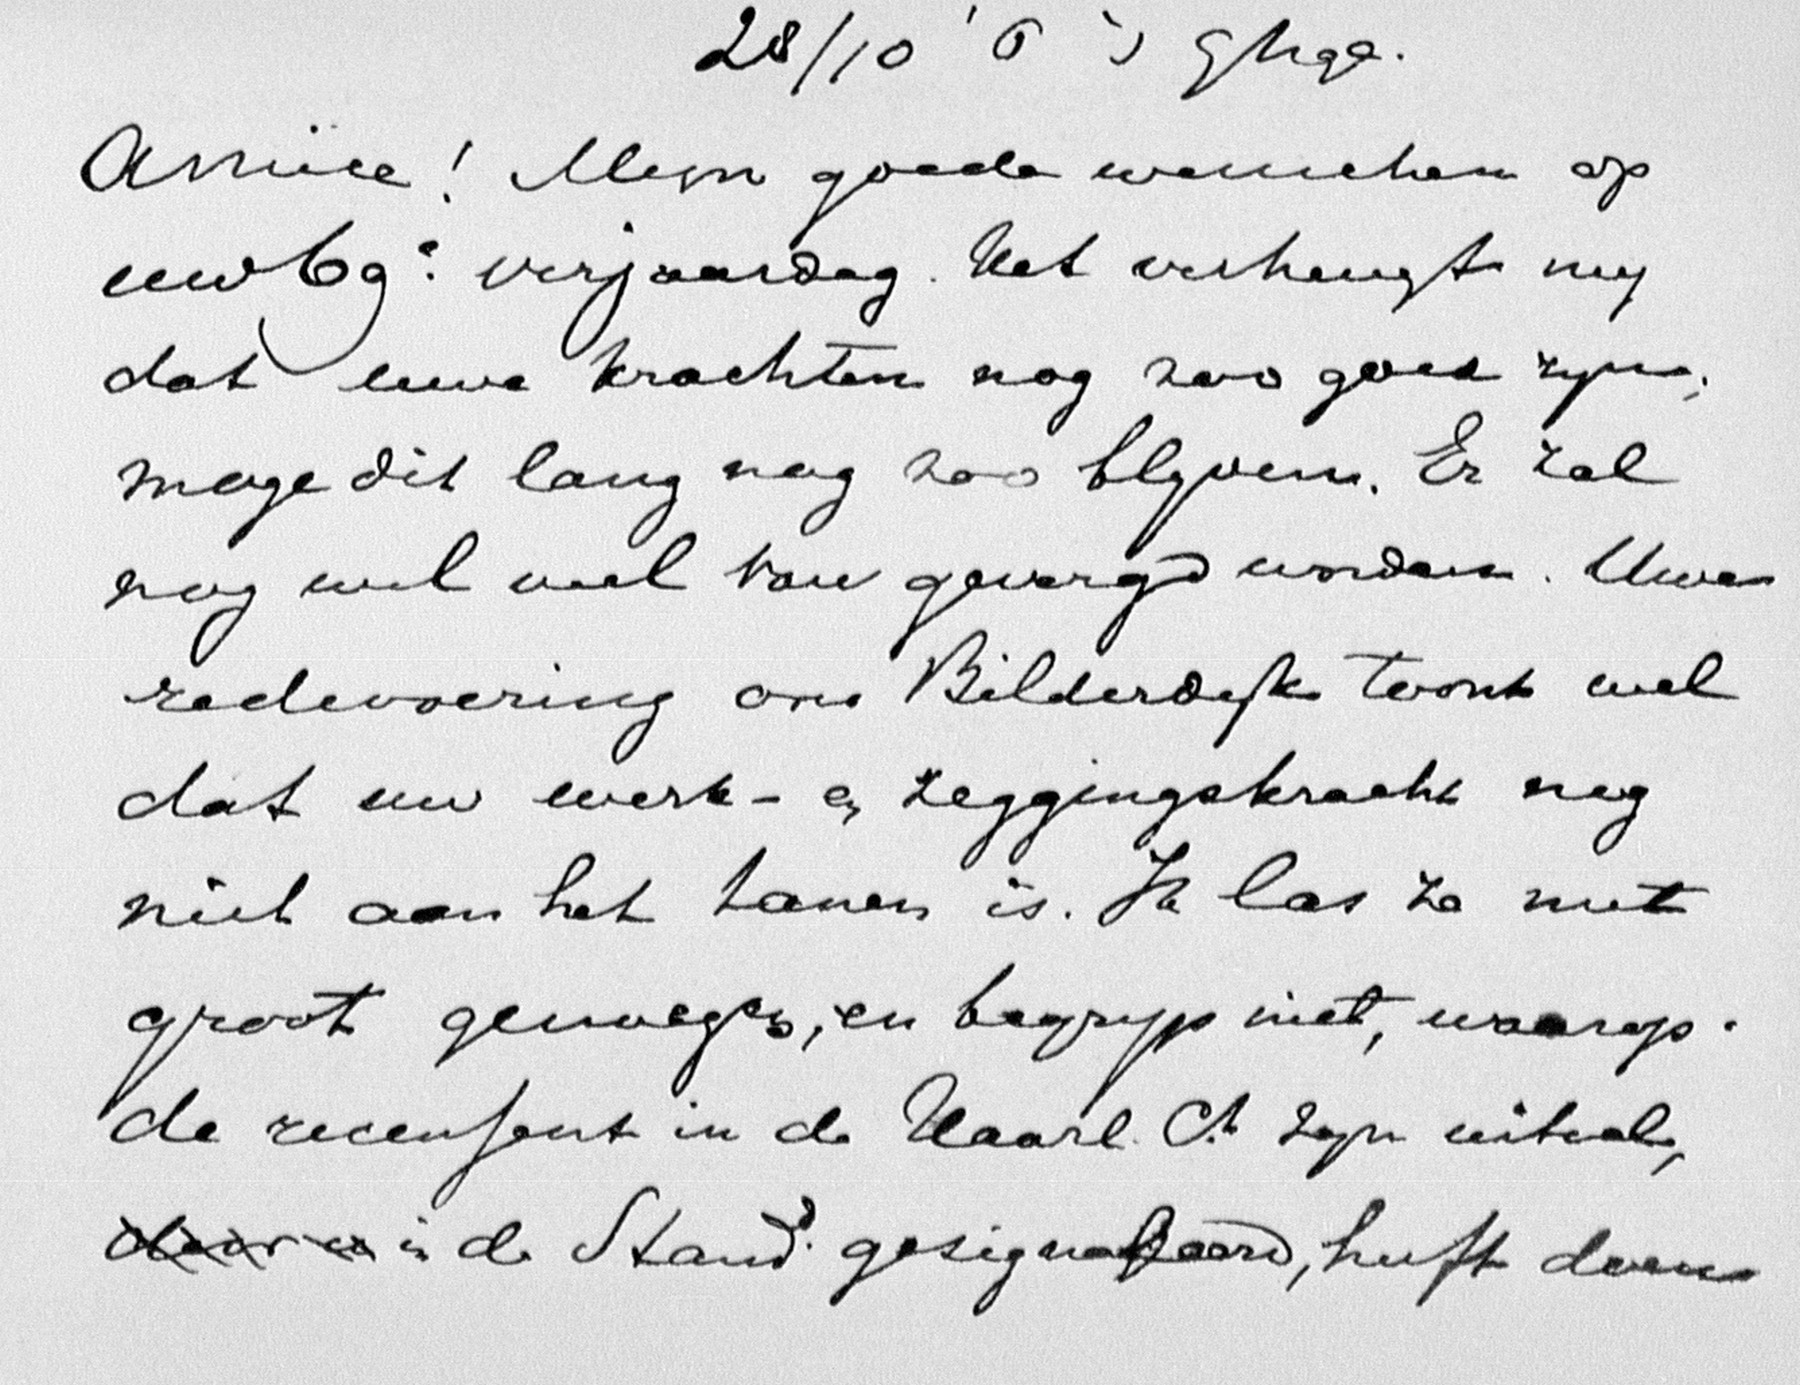 28/10 '6 's Ghge.
Amice! Mijn goede wenschen op
uw 69e verjaardag. Het verheugt mij
dat uwe krachten nog zoo goed zijn;
moge dit lang nog zoo blijven. Er zal
nog wel veel van gevergd worden. Uwe
redevoering over Bilderdijk toont wel
dat uw werk- en zeggingskracht nog
niet aan het tanen is. Ik las ze met
groot genoegen, en begrijp niet, waarop
de recensent in de Haarl. Ct zijn uitval,
in de Stand. gesignaleerd, heeft doen